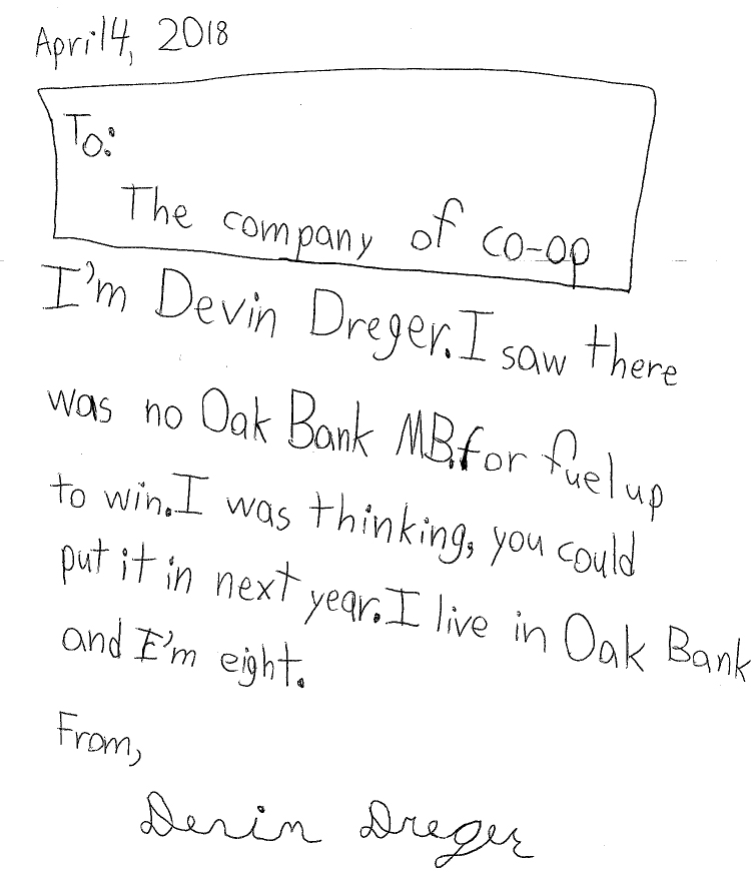 April 4, 2018
To:
The company of co-op
I'm Devin Dreger. I saw there
was no Oak Bank MB. for fuel up
to win. I was thinking, you could
put it in next year. I live in Oak Bank
and I'm eight.
From,
Devin Dreger